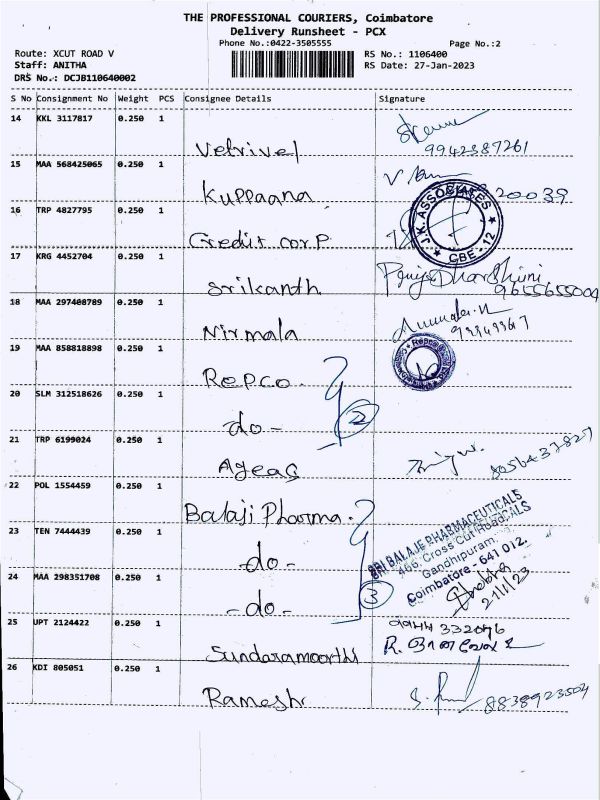 THE PROFESSIONAL COURIERS, Coimbatore
Delivery Runsheet - PCX
Phone No.:0422-3505555 Page No.:2
Route: XCUT ROAD V RS No.: 1106400
Staff: ANITHA RS Date: 27-Jan-2023
DRS No.: DCJB110640002
S No Consignment No Weight PCS Consignee Details Signature
14 KKL 3117817 0.250 1
Vetrivel 9942387261
15 MAA 568425065 0.250 1
Kuppaana 20039
16 TRP 4827795 0.250 1
Credit corp J.K. ASSOCIATES CBE - 12
17 KRG 4452704 0.250 1
Srikanth 9655655004
18 MAA 297408789 0.250 1
Nirmala
19 MAA 858818898 0.250 1
Repco
20 SLM 312518626 0.250 1
-do- 2
21 TRP 6199024 0.250 1
Ageas 8056437827
22 POL 1554459 0.250 1
Balaji Pharma. SRI BALAJE PHARMACEUTICALS
23 TEN 7444439 0.250 1 466, Cross Cut Road,
-do- Gandhipuram,
24 MAA 298351708 0.250 1 Coimbatore - 641 012.
-do- 3 21/1/23
25 UPT 2124422 0.250 1 9944 332076
Sundaramoorthi
26 KDI 805051 0.250 1
Ramesh 8838923504